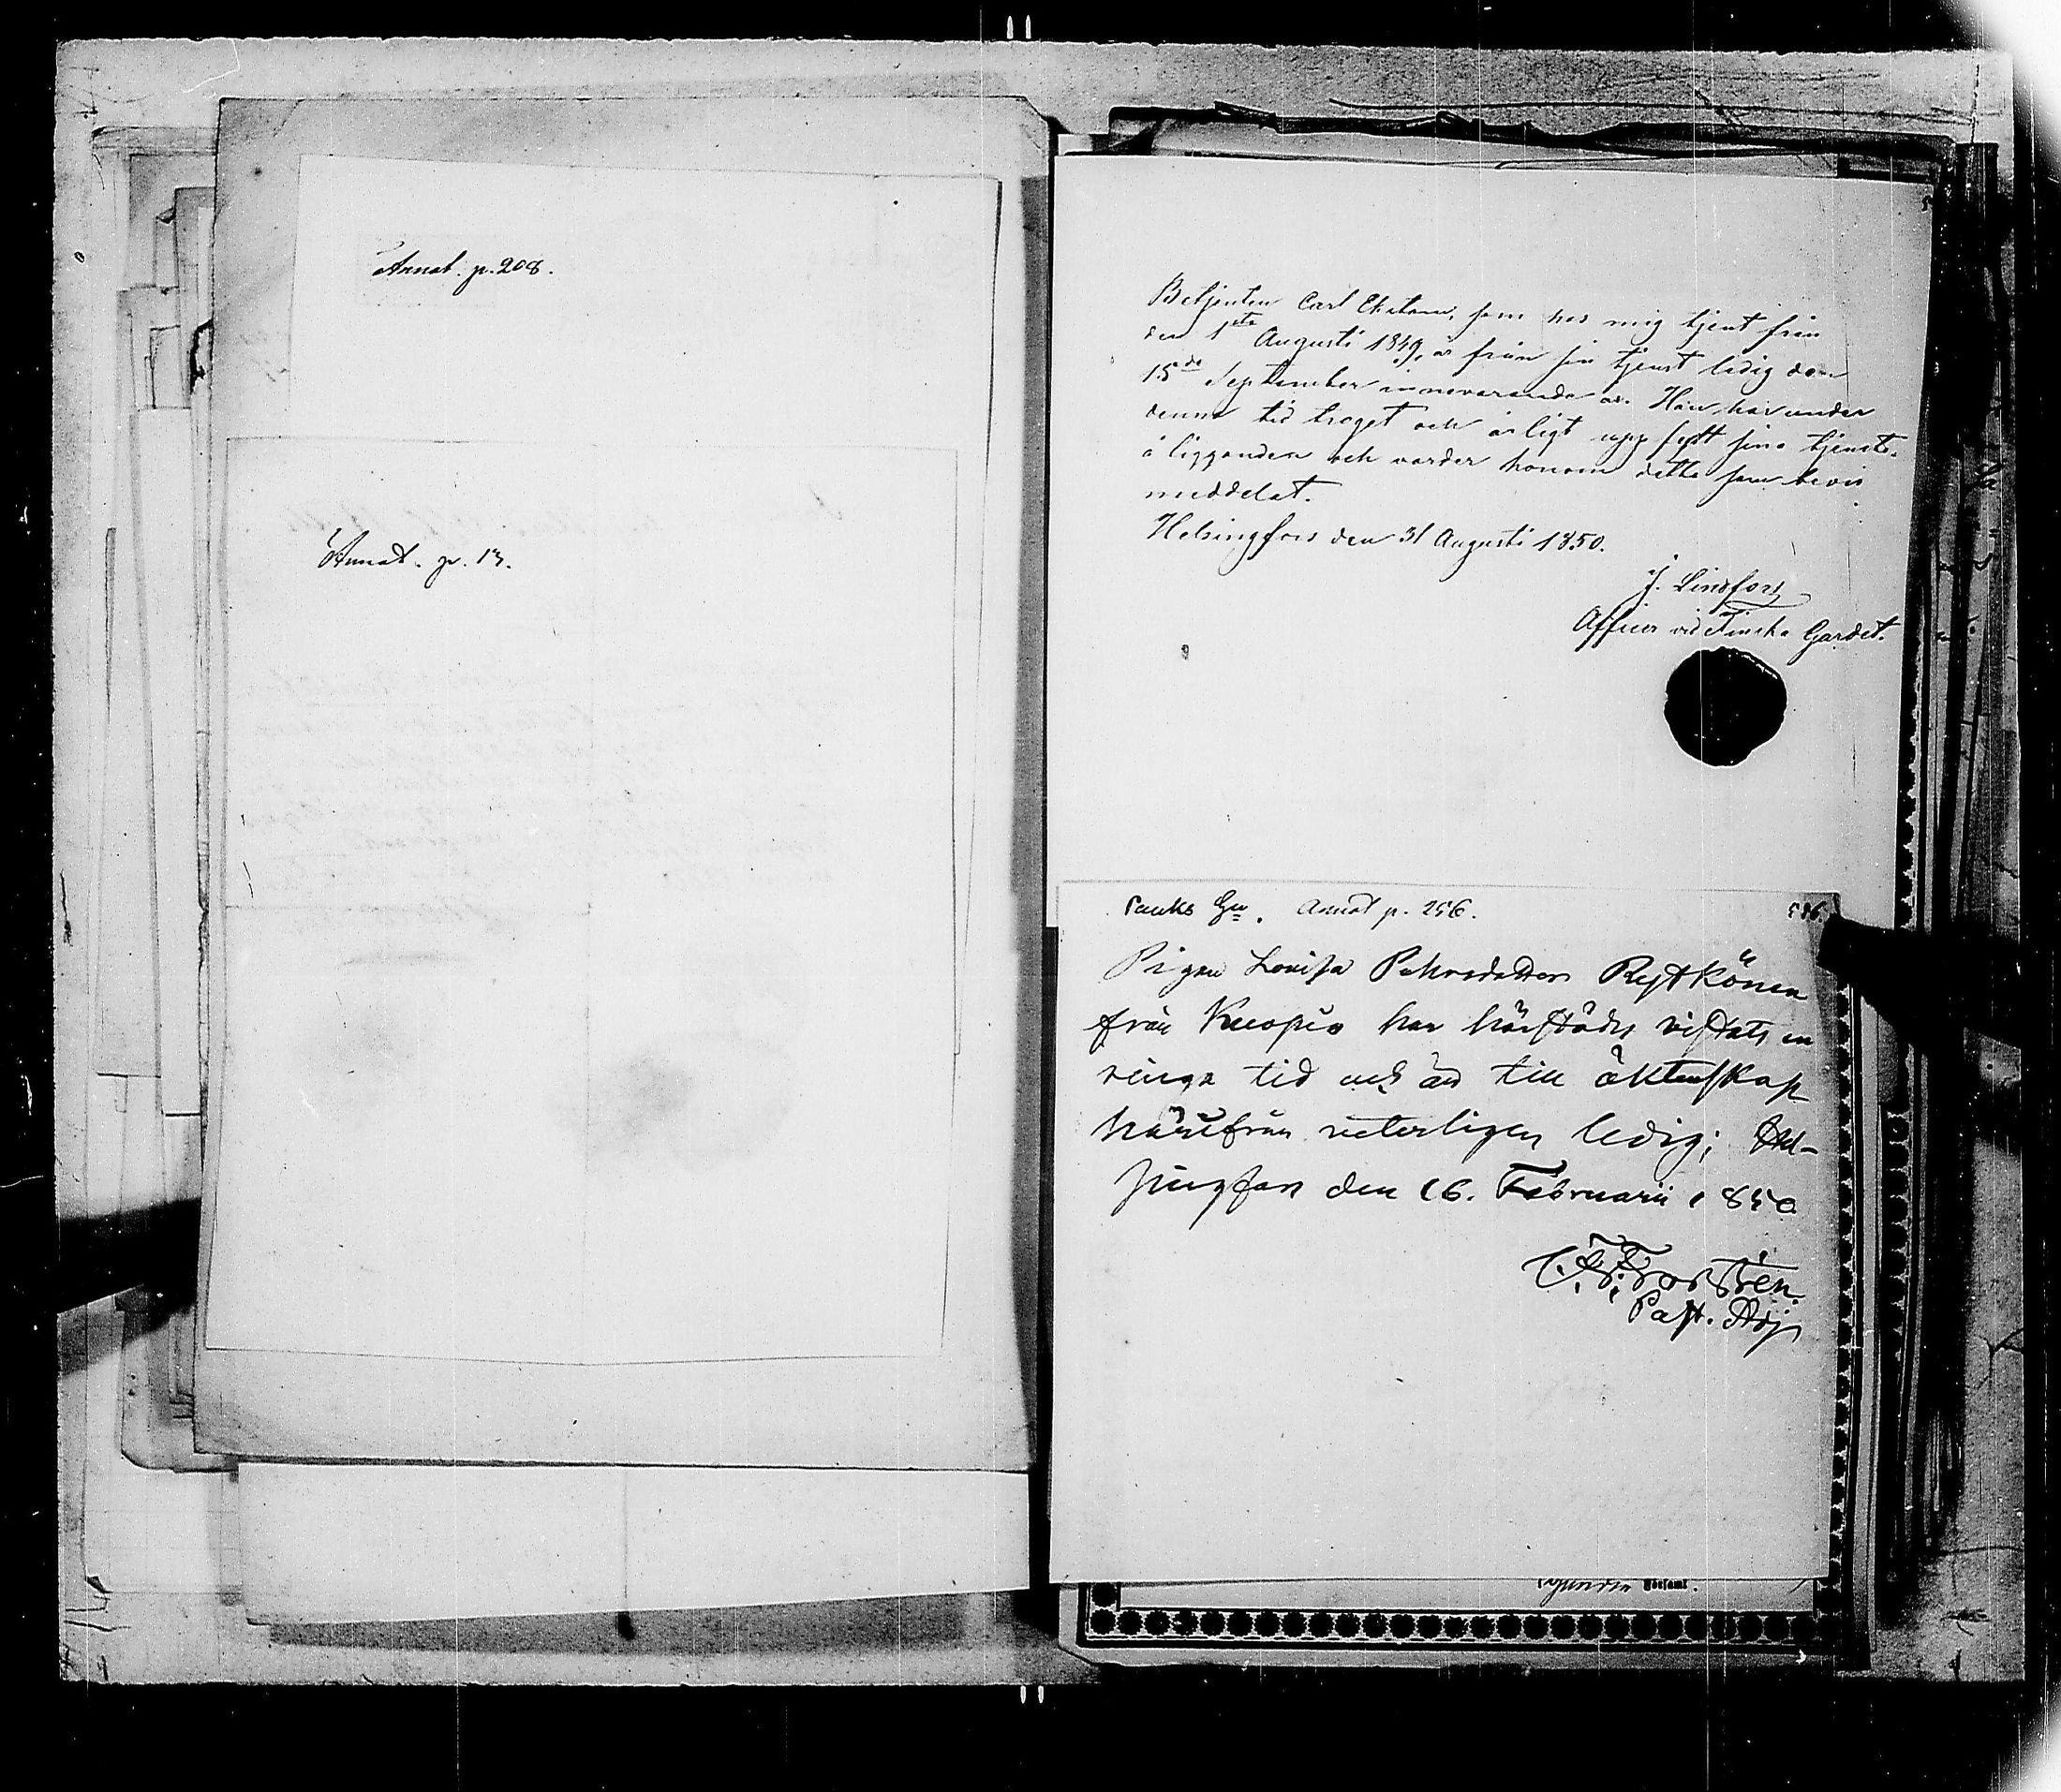 Annot. p. 208.
Annot. p. 13.
Betjenten Carl Ekstam, som hos mig tjent från
den 1sta Augusti 1849, är från sin tjenst ledig den
15de September innevarande år. Han har under
denna tid troget och ärligt uppfyllt sina tjenste-
åligganden och varder honom detta som bevis
meddelat.
Helsingfors den 31 Augusti 1850.
J. Lindfors
Officer vid Finska Gardet.
Annot p. 256.
Pigan Lovisa Pehrsdotter Rytkönen
från Kuopio har härstädes vistats en
ringa tid och är till äktenskap
härifrån veterligen ledig; Hel-
singfors den 16. Februarii 1850
Forstén.
Past. Adj.